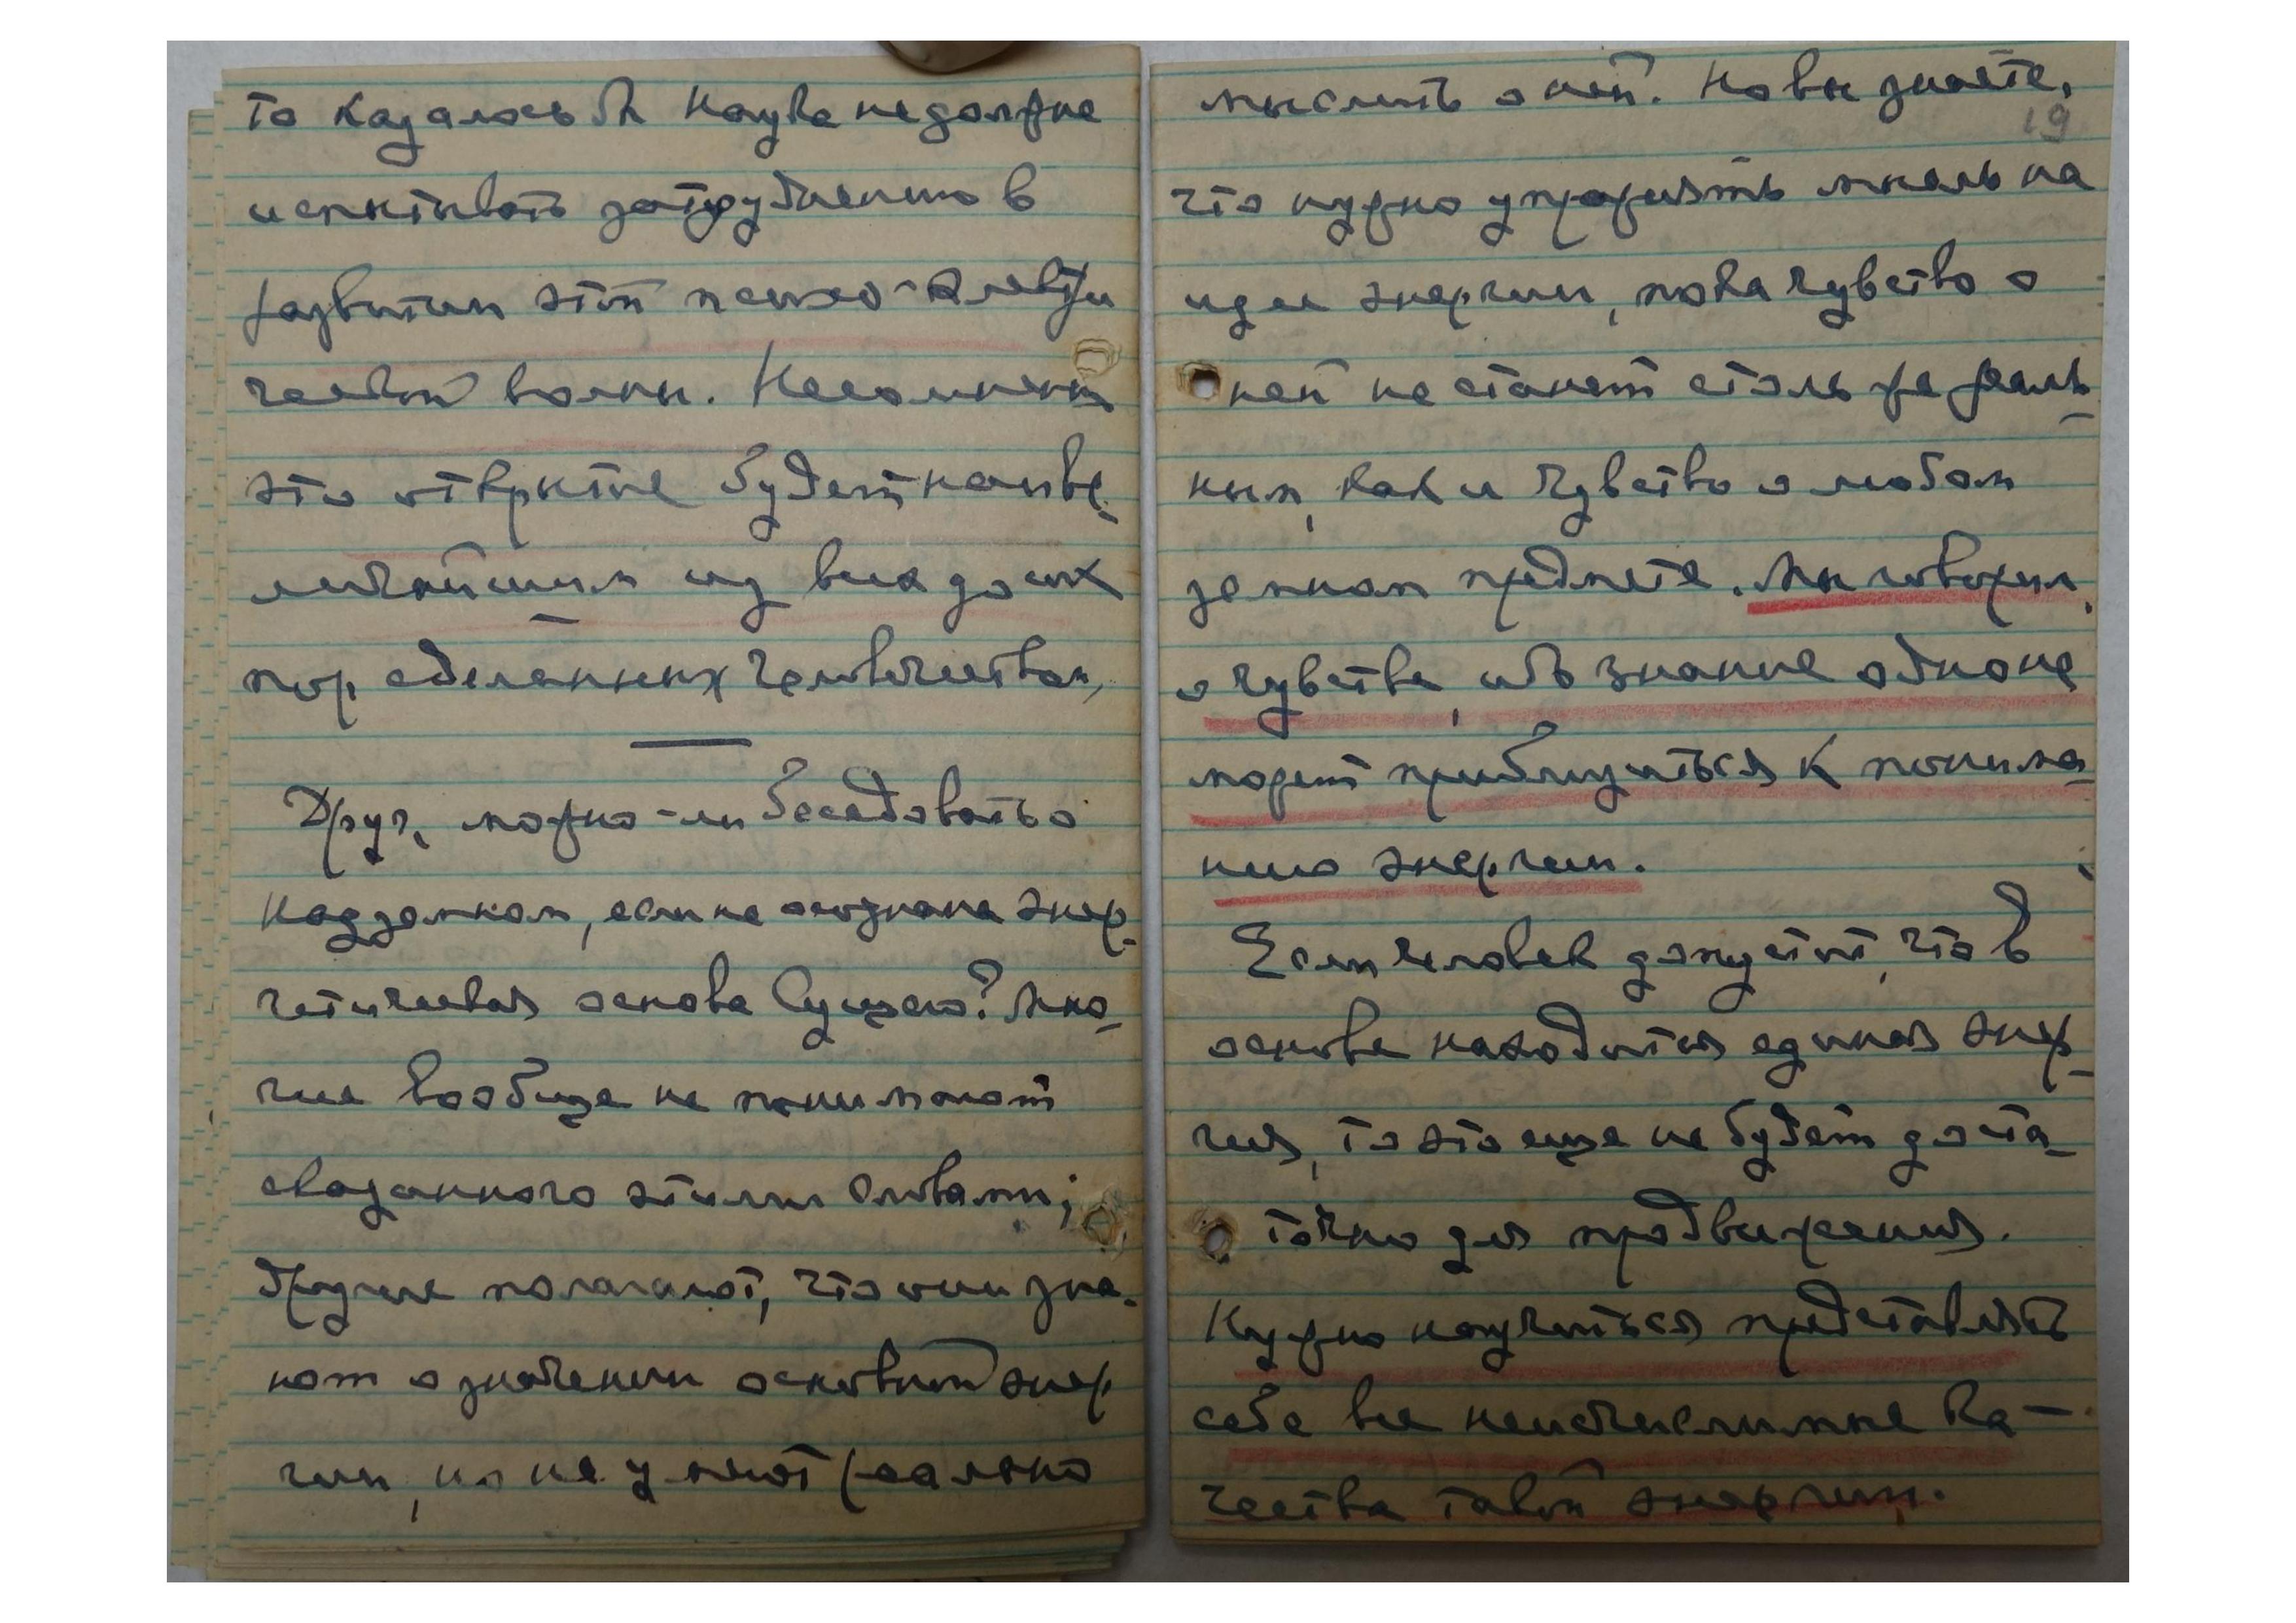 то казалось бы наука не должна
испытывать затруднению в
развитии этой психо-электри
ческой волны. Несомненно
это открытие будет наиве-
личайшим из всех до сих
пор, сделанных человечеством,
Друг, можно-ли беседовать о
Надземном, если не осознана энер-
гетическая основа Сущего? Мно-
гие вообще не понимают
сказанного этими словами;
другие полагают, что они зна-
ют о значении основной энер
гии, но не умеют реально
мыслить о ней. Но вы знаете,
19
что нужно упражнять мысль на
идее энергии, пока чувство о
ней не станет столь же реаль-
ным, как и чувство о любом
земном предмете. Мы говорим,
о чувстве, ибо знание одно не
может приблизиться к понима-
нию энергии.
Если человек допустит, что в
основе находится единая энер-
гия, то это еще не будет доста-
точно для продвижения.
Нужно научиться представлять
себе все неисчислимые ка-
чества такой энергии.